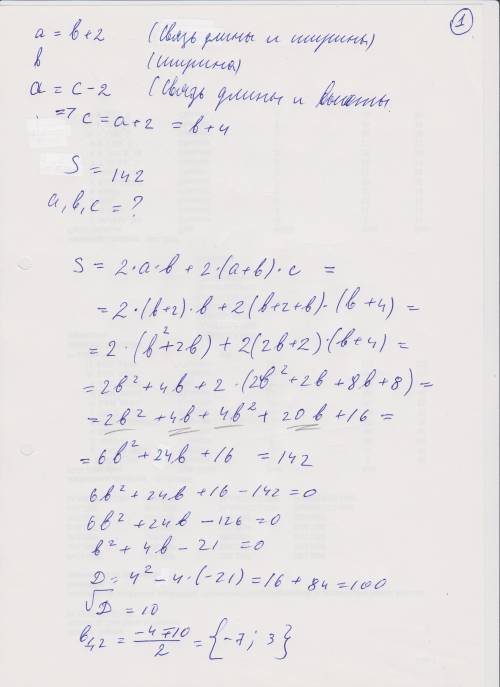 1
a = b+2 (связь длины и ширины)
b (ширина)
a = c-2 (связь длины и высоты
=> c = a+2 = b+4
S = 142
a, b, c = ?
S = 2·a·b + 2·(a+b)·c =
= 2·(b+2)·b + 2(b+2+b)·(b+4) =
= 2·(b²+2b) + 2(2b+2)·(b+4) =
= 2b²+4b + 2·(2b²+2b+8b+8) =
= 2b²+4b+4b²+20b+16 =
= 6b²+24b+16 = 142
6b²+24b+16-142=0
6b²+24b-126=0
b²+4b-21=0
D = 4²-4·(-21)=16+84=100
√D = 10
b₁,₂ = (-4∓10)/2 = {-7; 3}